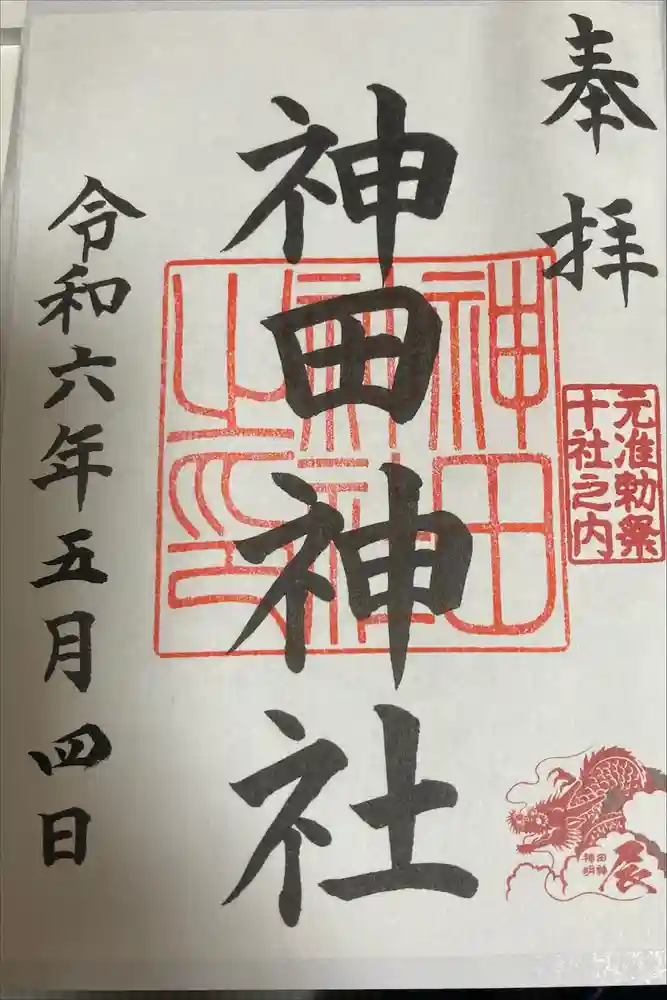 奉拝
元准勅祭
十社之内
神田神社
神田
神社
之印
辰
神田
明神
令和六年五月四日